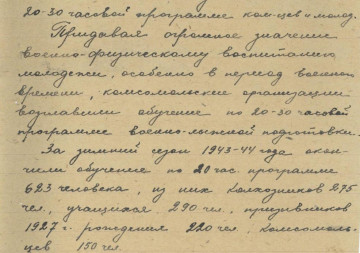 20-30 часовой программе ком-цев и молод.
Придавая огромное значение
военно-физическому воспитанию
молодежи, особенно в период военного
времени, комсомольские организации
возглавили обучение по 20-30 часовой
программе военно-лыжной подготовки.
За зимний сезон 1943-44 года окон-
чили обучение по 20 час программе
623 человека, из них колхозников 275
чел., учащихся 290 чел., призывников
1927 г. рождения 220 чел, комсомоль-
цев 150 чел.